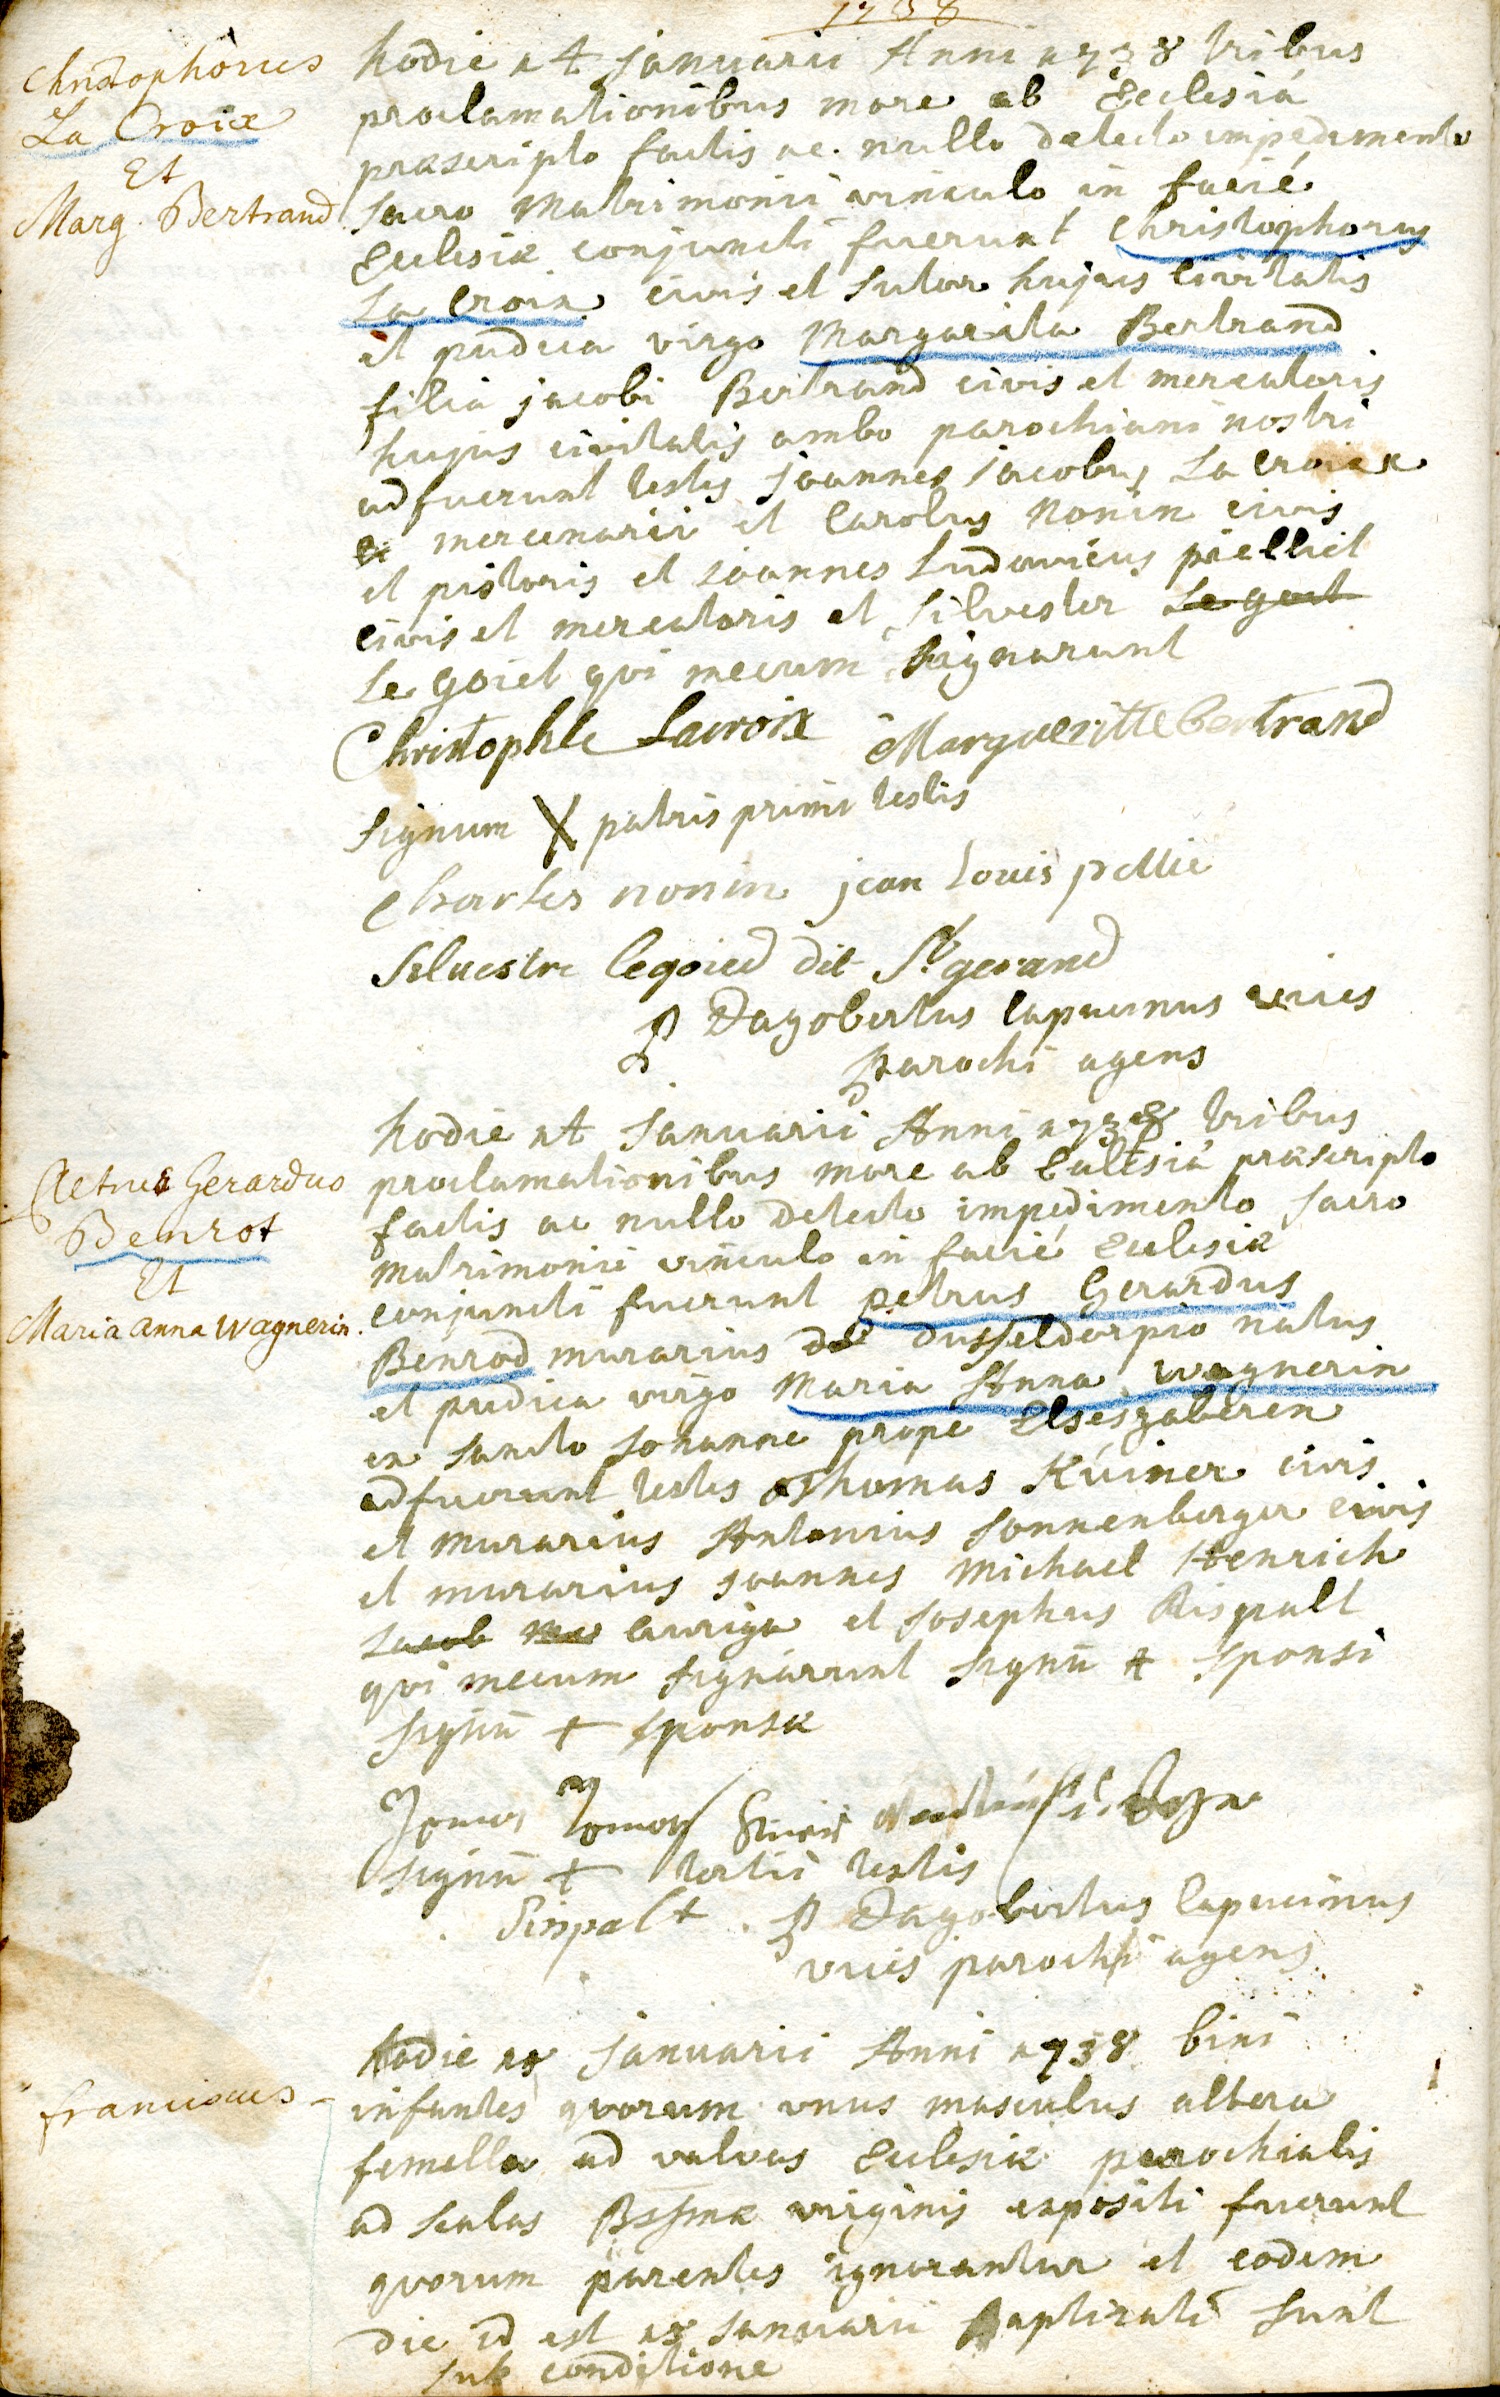 1738
Christophorus
La Croix
Et
Marg. Bertrand
hodie 14 januarii Anni 1738 tribus
proclamationibus more ab Ecclesiá
præscripto factis ac nullo detecto impedimento
sacro Matrimonii vinculo in facié
Ecclesiæ conjuncti fuerunt Christophorus
La Croix civis et sutor hujus civitatis
et pudica virgo Margarita Bertrand
filia jacobi Bertrand civis et mercatoris
hujus civitatis ambo parochiani nostri
adfuerunt testes joannes jacobus La Croix
mercenarii et Carolus Nonin civis
et pistoris et joannes Ludovicus piellict
civis et mercatoris et Silvester Le goet
Le goiet qui mecum signarunt
Christophle Lacroix Margueritte bertrand
signum X patris primi testis
Charles nonin jean Louis pellie
Silvestre legoied dit St gerand
P Dagobertus Capucinus vices
parochi agens
Petrus Gerardus
Benrot
Et
Maria anna Wagnerin
hodie 14 januarii Anni 1738 tribus
proclamationibus more ab Ecclesiá præscripto
factis ac nullo detecto impedimento sacro
matrimonii vinculo in facié Ecclesiæ
conjuncti fuerunt petrus Gerardus
Benrod murarius de dusseldorpio natus
et pudica virgo Maria Anna Wagnerin
ex sancto Johanne prope Elseszaberen
adfuerunt testes Thomas Küiner civis
et murarius Antonius sonnenberger civis
et murarius joannes Michael Henrich
Jacob auriga et Josephus Rispalt
qui mecum signárunt signū + sponsi
signū + sponsæ
signū + tertii testis
Rispalt. P Dagobertus Capucinus
vices parochi agens
franciscus
hodie 18 januarii Anni 1738 bini
infantes quorum unus masculus altera
femella ad valvas Ecclesiæ parochialis
ad scalas Bssmæ virginis expositi fuerunt
quorum parentes ignorantur et eodem
die id est 18 januarii baptizati sunt
sub conditione